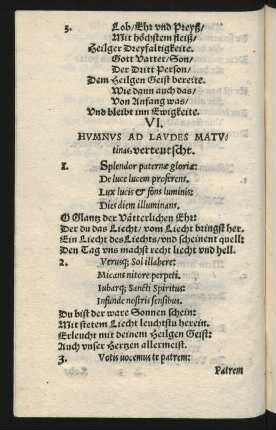 5. Lob/Ehr vnd Preyß/
Mit höchstem fleiß/
Heilger Dreyfaltigkeite.
Gott Vatter/Son/
Der Dritt Person/
Dem Heilgen Geist bereite.
Wie dann auch das/
Von Anfang was/
Vnd bleibt inn Ewigkeite.
VI.
HVMNVS AD LAVDES MATV/
tinas, verteutscht.
1. Splendor paternæ gloriæ:
De luce lucem proferens,
Lux lucis & fons luminis:
Dies diem illuminans.
O Glantz der Vätterlichen Ehr:
Der du das Liecht/ vom Liecht bringst her.
Ein Liecht des Liechts/vnd scheinent quell:
Den Tag vns machst recht liecht vnd hell.
2. Verusq; Sol illabere:
Micans nitore perpeti.
Iubarq; Sancti Spiritus:
Infunde nostris sensibus.
Du bist der ware Sonnen schein:
Mit stetem Liecht leuchtstu herein.
Erleucht mit deinem Heilgen Geist:
Auch vnser Hertzen allermeist.
3. Votis uocemus te patrem:
Patrem